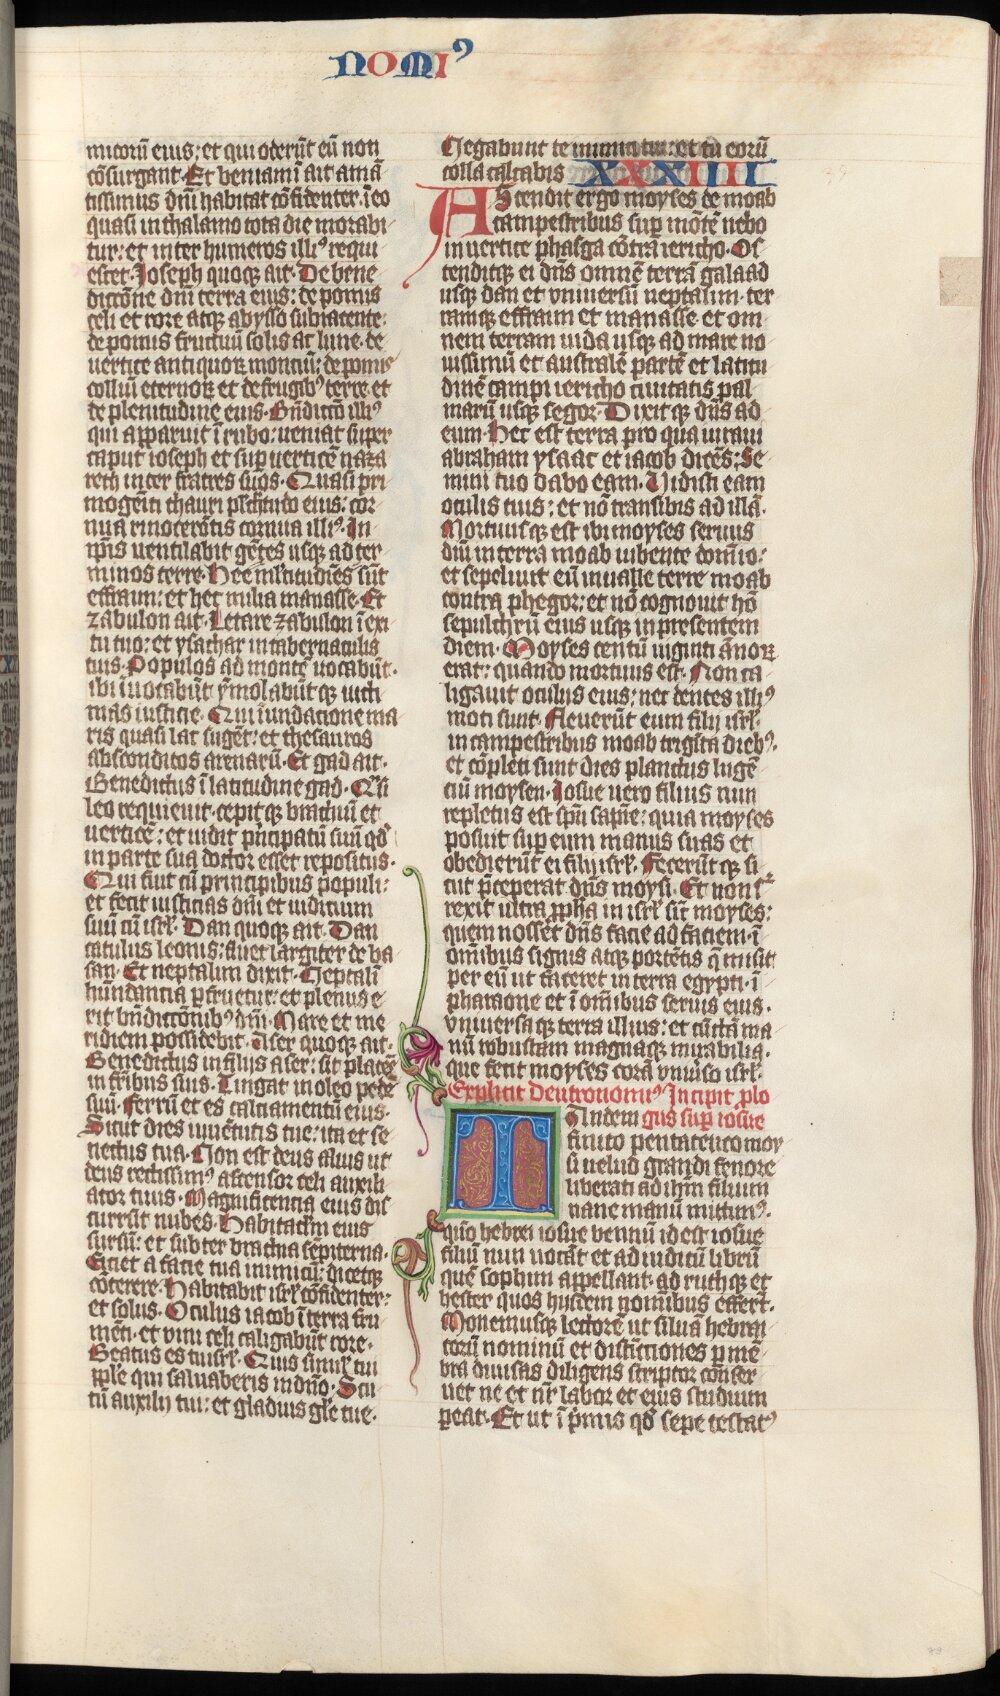 NOMIꝰ
micorū eius; et qui oderūt eū non
cōsurgant. Et beniami ̄ ait amā
tissimus dn̄i habitat cōfidenter ī eo
quasi in thalamo tota die morabi
tur: et inter humeros illiꝰ requi
escet. Joseph quoqꝫ ait. De bene
dictōne dn̄i terra eius: de pomis
celi et rore atqꝫ abysso subiacente.
de pomis fructuū solis ac lune. de
vertice antiquoꝝ montiū: de pomis
colliū eternoꝝ et de frugibꝰ terre. et
de plenitudine eius. Bn̄dictō illiꝰ
qui apparuit ī rubo: ueniat super
caput ioseph et sup̄ uerticē naza
reth inter fratres suos. Quasi pri
mogēiti thauri pl̄chritudo eius: cor
nua rinocerōtis cornua illiꝰ. In
ip̄is uentilabit gētes usqꝫ ad ter
minos terre. Hee ml̄titudīes sūt
effraim: et hec milia manasse. Et
zabulon ait. Letare zabulon ī exi
tu tuo: et ysachar in tabernaculis
tuis. Populos ad montē uocabūt.
ibi īuocabūt ȳmolabūtqꝫ uicti
mas iusticie. Qui īundacione ma
ris quasi lac suget: et thesauros
absconditos arenarū. Et gad ait.
Benedictus ī latitudine gad. Qªsi
leo requieuit. cepitqꝫ brachiū et
uerticē: et uidit p̄ncipatū suū qd̄
in parte sua doctor esset repositus.
Qui fuit cū principibus populi:
et fecit iusticias dn̄i et iuditium
suū cū isrl̄. Dan quoqꝫ ait. Dan
catulus leonis: fluet largiter de ba
san. Et neptalim dixit. Neptalī
hūndantia p̄fruetur: et plenus e
rit bn̄dictōnibꝰ dn̄i. Mare et me
ridiem possidebit. Aser quoqꝫ ait.
Benedictus in filijs aser: sit placēs
in fr̄ibus suis. Tingat in oleo pedē
suū. Ferrū et es calciamentū eius.
Sicut dies iuuētutis tue: ita et se
nectus tua. Non est deus alius ut
deus rectissimꝰ ascensor celi auxili
ator tuus. Magnificentia eius dis
currūt nubes. Habitaclm̄ eius
sursū: et subter brachia sēpiterna.
Eiciet a facie tua inimicū: dicetqꝫ
cōterere. Habitabit isrl̄ cōfidenter:
et solus. Oculus iacob ī terra fru
mēti. et vini celi caligabūt rore.
Beatus es tu isrl̄. Quis similꝭ tui
ip̄le qui saluaberis in dn̄o. Scu
tū auxilij tui: et gladius gl̄e tue.
Negabunt te inimici tui: et tū eorū
colla calcabis XXXIIII
AScendit ergo moyses de moab
campestribus sup̄ mōtē nebo
in uertice phasga cōtra iericho. Os
tenditqꝫ ei dn̄s omnē terrā galaad
usqꝫ dan et vniuersū neptalim. ter
ramqꝫ effraim et manasse. et om
nem terram iuda usqꝫ ad mare no
uissimū et australē partē et latitu
dinē campi iericho ciuitatis pal
marū usqꝫ segor. Dixitqꝫ dn̄s ad
eum. Hec est terra pro qua iuraui
abraham ysaac et iacob dicēs: Se
mini tuo dabo eam. Uidisti eam
oculis tuis: et nō transibis ad illā.
Mortuusqꝫ est ibi moyses seruus
dn̄i in terra moab iubente domīo:
et sepeliuit eū in ualle terre moab
contra phegor: et nō cognouit hō
sepulchrū eius usqꝫ in presentem
diem. Moyses centū uiginti ānoꝝ
erat: quando mortuus est. Non ca
ligauit oculus eius; nec dentes illiꝰ
moti sunt. Fleuerūt eum filij isrl̄
in campestribus moab trigīta diebꝰ.
et cōpleti sunt dies planctus lugē
ciū moysen. Josue uero filius nun
repletus est spū sapie: quia moyses
posuit sup̄ eum manus suas et
obedierūt ei filij isrl̄. Feceрūtqꝫ si
cut p̄ceperat dn̄s moysi. Et non sʳ
rexit ultra ꝓpha in isrl̄ sic̄ moyses:
quem nosset dn̄s facie ad faciem. ī
omībus signis atqꝫ portētis q̄ misit
per eū ut faceret in terra egypti. ī
pharaone et ī omībus seruis eius.
vniuersaqꝫ terra illius: et cūctā ma
nū robustam magnaqꝫ mirabilia.
que fecit moyses corā vniuſo isrl̄.
Explicit deutronomiꝰ Incipit ꝓlo
gus sup̄ iosue
TAndem
finito pentateuco moy
si uelud grandi fenore
liberati ad ihm̄ filium
naue manū mittimꝰ.
quē hebrei iosue bennū id est iosue
filiū nun uocāt et ad iudicū librū
quē sophim appellant. ad ruthqꝫ et
hester quos hijsdem noībus efferr̄t.
Monemusqꝫ lectorē ut siluā hebrai
corū nominū et distīctiones p̄ mē
bra diuisas diligens scriptor conser
uet ne et nr̄ labor et eius studium
p̄eat. Et ut ī p̄mis qd̄ sepe testatꝰ